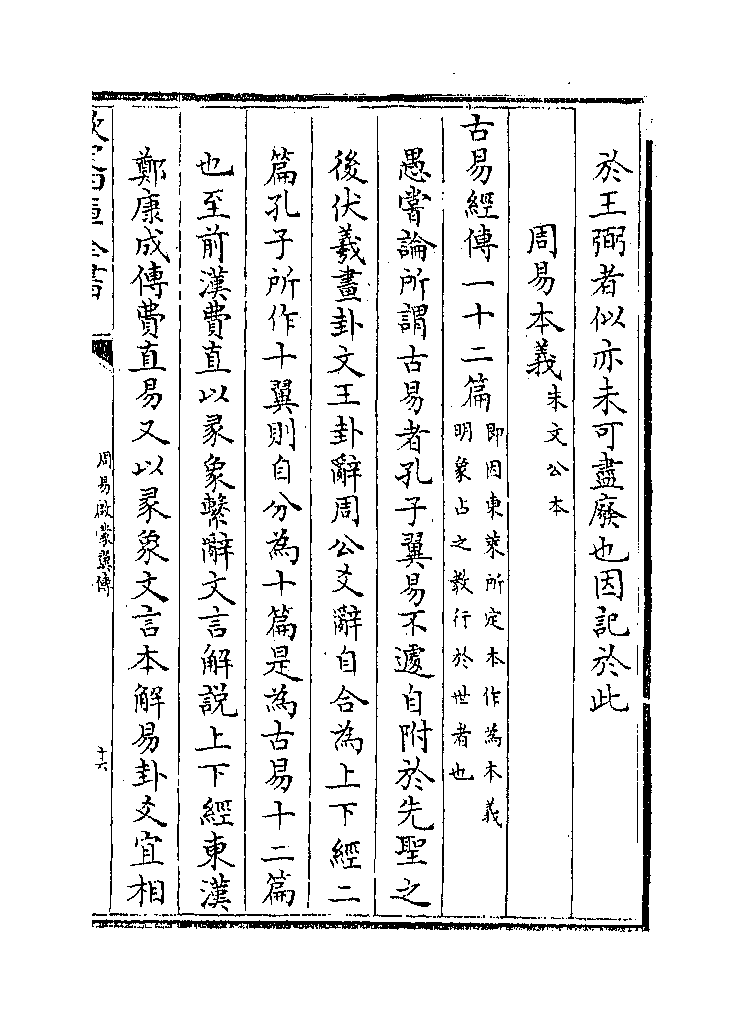 於王弼者似亦未可盡廢也因記於此
周易本義朱文公本
古易經傳一十二篇即因東萊所定本作為本義
明象占之教行於世者也
愚嘗論所謂古易者孔子翼易不遽自附於先聖之
後伏羲畫卦文王卦辭周公爻辭自合為上下經二
篇孔子所作十翼則自分為十篇是為古易十二篇
也至前漢費直以彖象繫辭文言解説上下經東漢
鄭康成傳費直易又以彖象文言本解易卦爻宜相
欽定四庫全書
周易啟蒙翼傳
十六